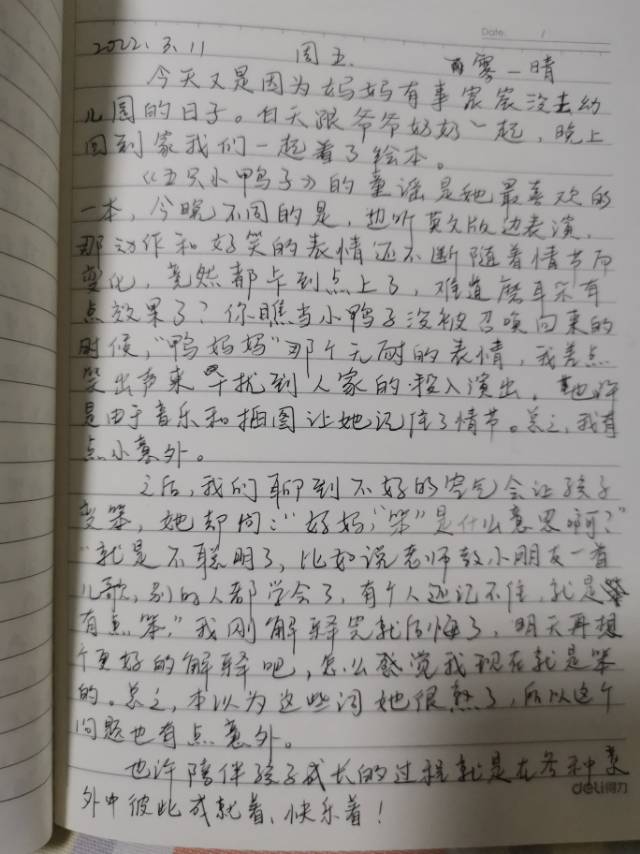 Date. /
2022.3.11 周五. 雾—晴
今天又是因为妈妈有事宸宸没去幼
儿园的日子。白天跟爷爷奶奶一起,晚上
回到家我们一起看了绘本。
《五只小鸭子》的童谣是她最喜欢的
一本,今晚不同的是,边听英文版边表演.
那动作和好笑的表情还不断随着情节而
变化,竟然都卡到点上了,难道磨耳朵有
点效果了?你瞧当小鸭子没被召唤回来的
时候,"鸭妈妈"那个无耐的表情,我差点
笑出声来 干扰到人家的投入演出。也许
是由于音乐和插图让她记住了情节。总之,我有
点小意外。
之后,我们聊到不好的空气会让孩子
变笨,她却问:"妈妈,"笨"是什么意思啊?"
"就是不聪明了,比如说老师教小朋友一首
儿歌,别的人都学会了,有个人还记不住,就是
有点笨."我刚解释完就后悔了,明天再想
个更好的解释吧,怎么感觉我现在就是笨
的。总之,本以为这些词她很熟了,所以这个
问题也有点意外。
也许陪伴孩子成长的过程就是在各种意
deli得力
外中彼此成就着、快乐着!